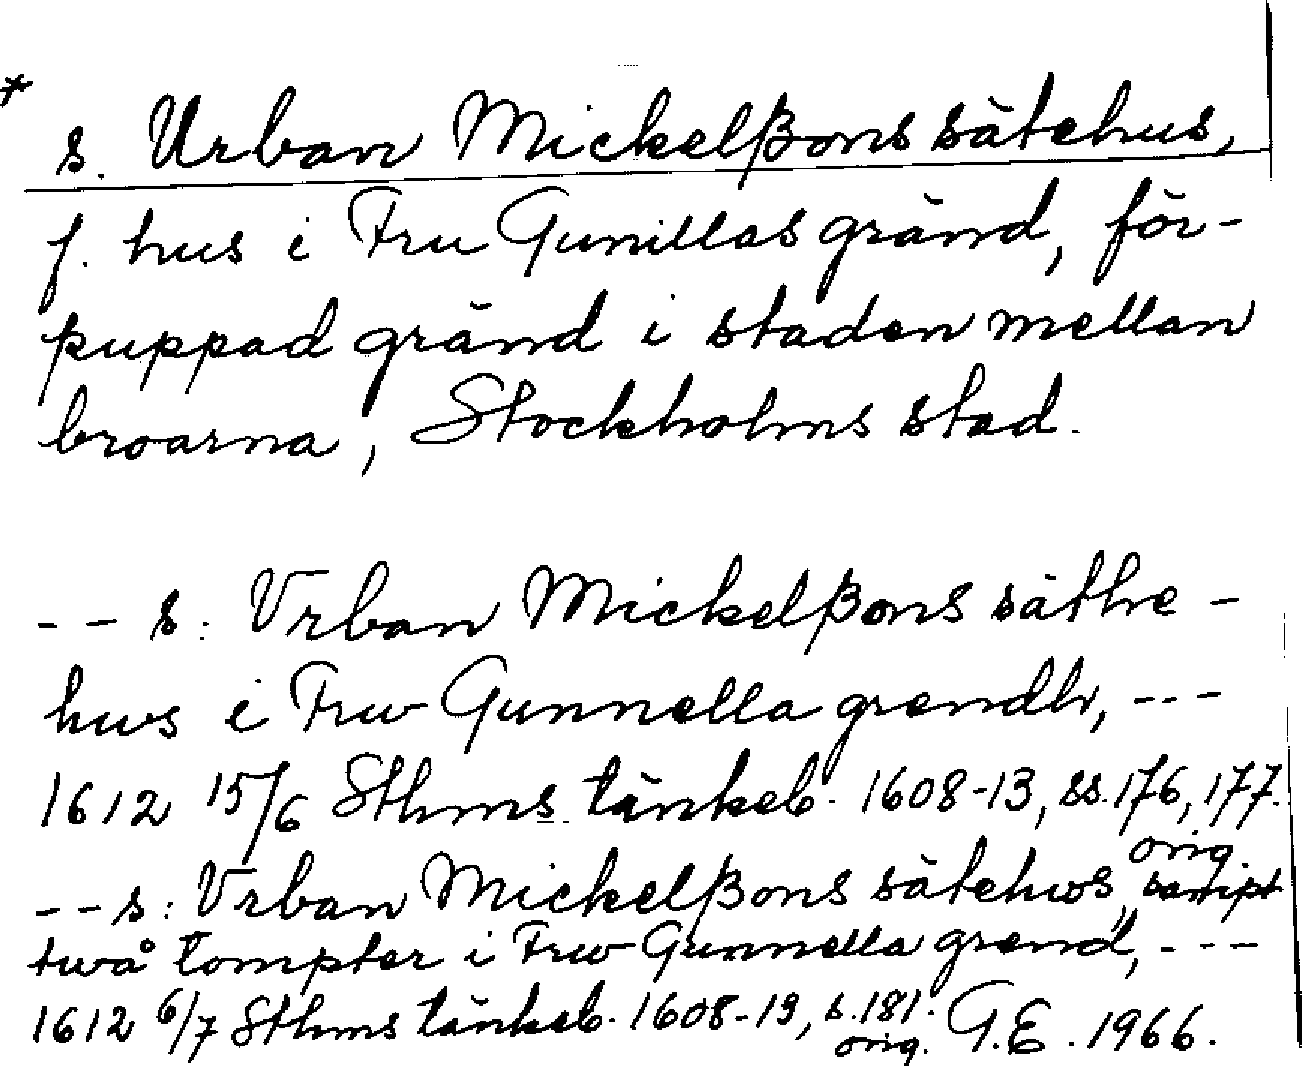 * s. Urban Mickelßons sätehus,
f. hus i Fru Gunillas gränd, för-
puppad gränd i staden mellan
broarna, Stockholms stad.
-- s: Vrban Mickelßons säthe-
hws i Frw Gunnella grendh, ---
1612 15/6 Sthms tänkeb. 1608-13, ss. 176, 177.
orig.
-- s: Vrban Mickelßons sätehws, sampt
twå tompter i Frw Gunnella grend, ---
1612 6/7 Sthms tänkeb. 1608-13, s. 181. G.E. 1966.
orig.